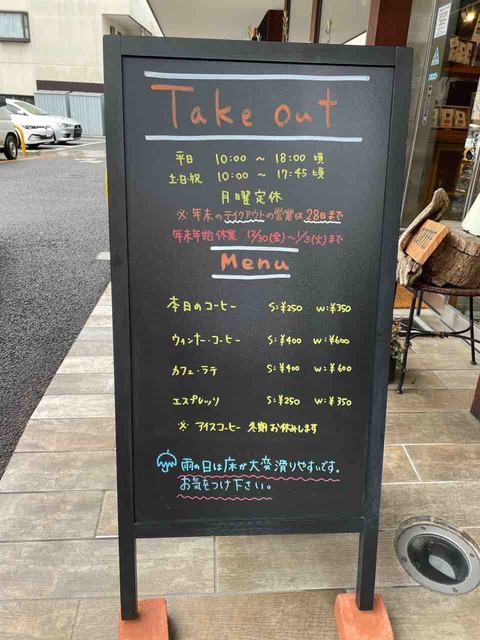 Take out
平日 10:00 ～ 18:00 頃
土・日・祝 10:00 ～ 17:45 頃
月曜定休
※ 年末のテイクアウトの営業は28日まで
年末年始休業 12/30(金)～1/3(火)まで
Menu
本日のコーヒー S:¥250 W:¥350
ウィンナー・コーヒー S:¥400 W:¥600
カフェ・ラテ S:¥400 W:¥600
エスプレッソ S:¥250 W:¥350
※ アイスコーヒー 冬期お休みします
雨の日は床が大変滑りやすいです。
お気をつけ下さい。